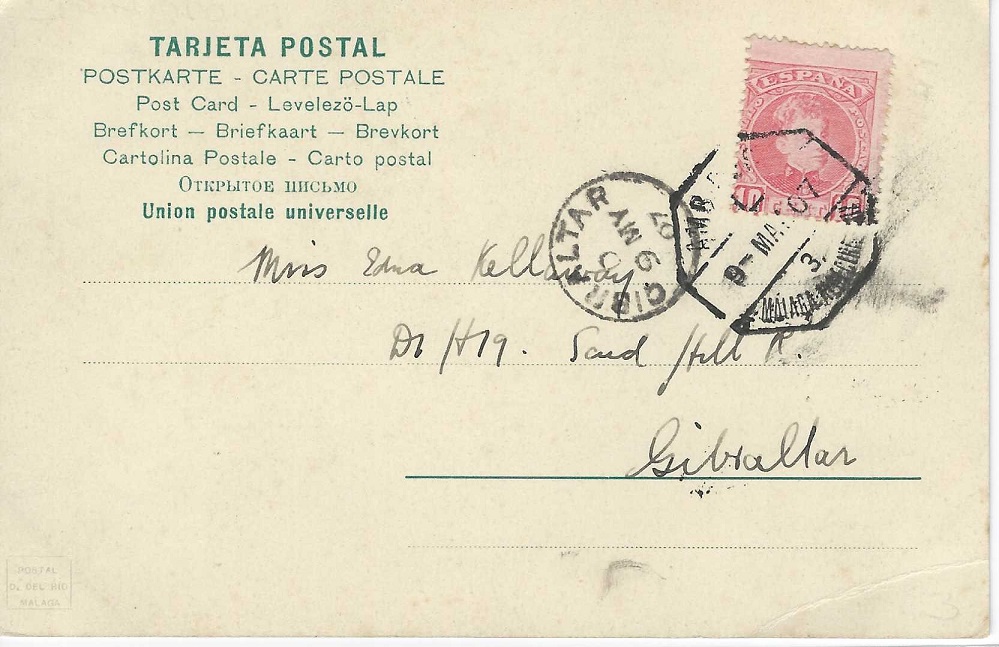 TARJETA POSTAL
POSTKARTE - CARTE POSTALE
Post Card - Levelezö-Lap
Brefkort — Briefkaart — Brevkort
Cartolina Postale - Carto postal
Открытое письмо
Union postale universelle
ESPAÑA
10
GIBRALTAR
9 MY
07
AMB
9-MAY 07
MALAGA
Miss Edna Kellaway
Sand Hill R.
Gibraltar
POSTAL
D. DEL RIO
MALAGA